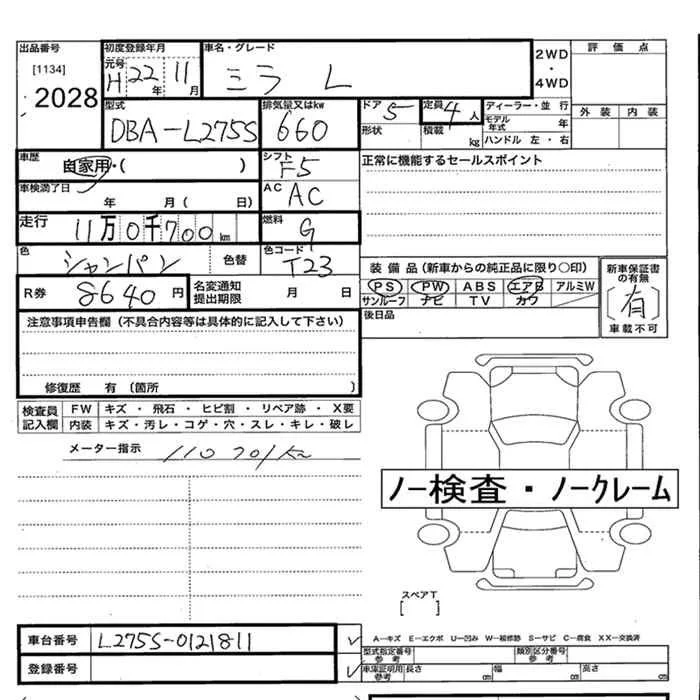 出品番号 初度登録年月 車名・グレード 2WD・4WD 評価点
[1134] 元号 H 22年 11月 ミラ L
2028 外装 内装
型式 排気量又はkw ドア 5 定員 4人 ディーラー・並行
DBA-L275S 660 形状 積載 kg モデル年式 年
ハンドル 左・右
車歴 自家用・( ) シフト F5 正常に機能するセールスポイント
車検満了日 年 月( 日) AC AC
走行 11万0千700km 燃料 G
色 シャンパン 色替 色コード T23
装備品(新車からの純正品に限り○印) 新車保証書の有無
R券 8640円 名変通知提出期限 月 日 PS PW ABS エアB アルミW (有)
サンルーフ ナビ TV カワ
注意事項申告欄(不具合内容等は具体的に記入して下さい) 後日品 車載不可
修復歴 有(箇所 )
検査員記入欄 FW キズ・飛石・ヒビ割・リペア跡・X要
内装 キズ・汚レ・コゲ・穴・スレ・キレ・破レ
メーター指示 110701km
ノー検査・ノークレーム
スペアT
[ ]
車台番号 L275S-0121811 A―キズ E―エクボ U―凹み W―補修跡 S―サビ C―腐食 XX―交換済
型式指定番号 参考 類別区分番号 参考
登録番号 車庫証明用参考 長さ cm 幅 cm 高さ cm